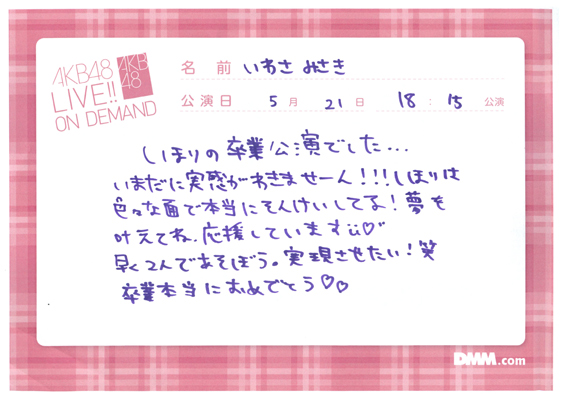 AKB48
LIVE!!
ON DEMAND
AKB
48
名 前 いわさ みさき
公演日 5月 21日 18:15 公演
しほりの卒業公演でした...
いまだに実感がわきませーん!!!しほりは
色々な面で本当にそんけいしてる!夢を
叶えてね、応援しています♡
早く2人であそぼう。実現させたい!笑
卒業本当におめでとう♡♡
DMM.com